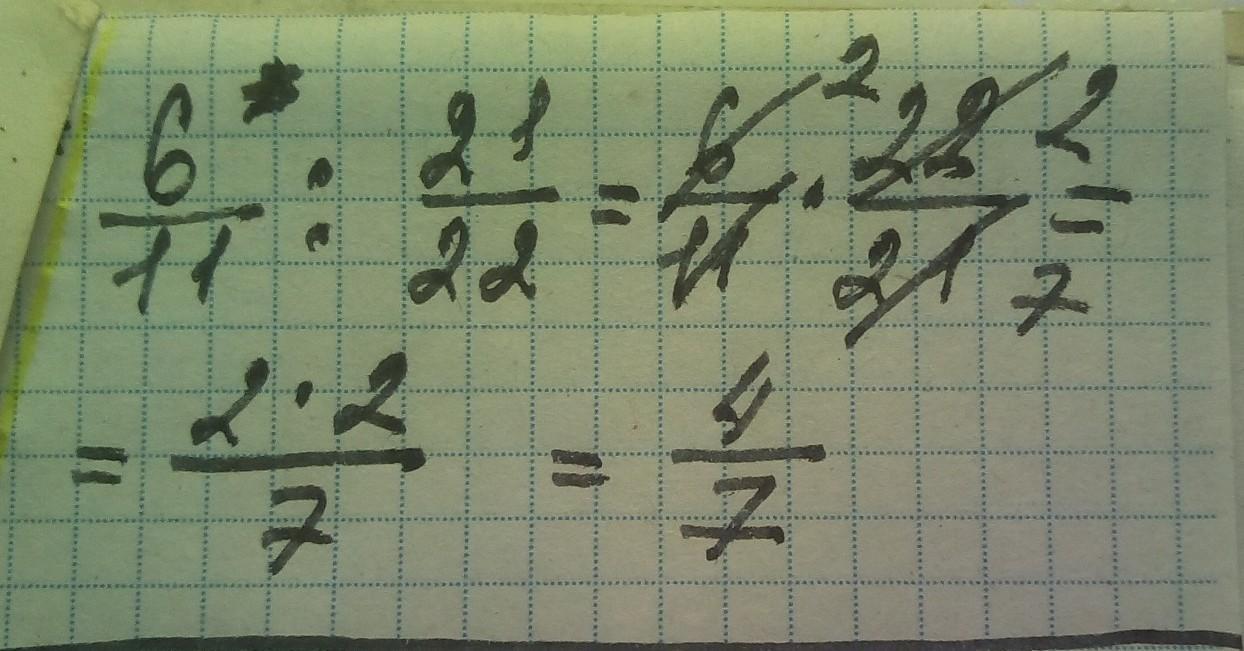 6/11 : 21/22 = 6/11 2 · 22/21 2/7 =
= 2·2/7 = 4/7